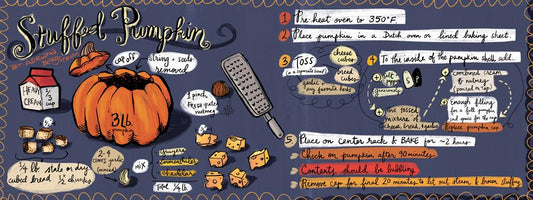 Stuffed Pumpkin
cap off
strings + seeds
removed
HEAVY
CREAM
1/3
cup
3lb.
pumpkin
1 pinch
fresh grate
nutmeg
1/4 lb stale or dry
cubed bread 1/2 chunks
2-4
cloves garlic
(minced)
mix
gruyere
emmenthaler
cheddar
Total 1/4 lb
1 Pre-heat oven to 350°F.
2 Place pumpkin in a Dutch oven or lined baking sheet.
3 TOSS
(in a separate bowl)
cheese
cubes
bread
cubes
garlic
4 To the inside of the pumpkin shell add...
salt +
pepper
generously
the tossed
mixture of
cheese, bread, + garlic
combined cream
& nutmeg
(poured on top)
Enough filling
for a full pumpkin
and space for the cap
Replace pumpkin cap
5 Place on center rack & BAKE for ~2 hours
Check on pumpkin after 90 minutes
Contents should be bubbling
Remove cap for final 20 minutes to let out steam & brown stuffing